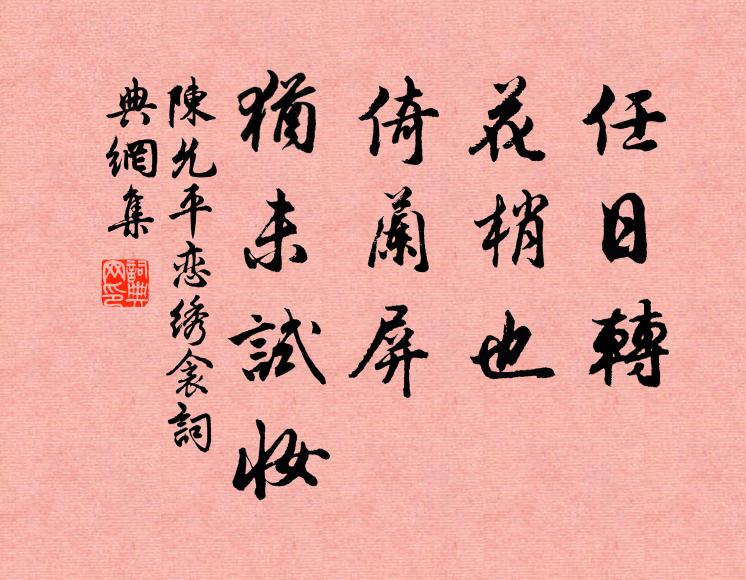 任日轉
花梢也
倚蘭屏
猶未試妝
陳允平恋绣衾詞
典網集
詞典
网印